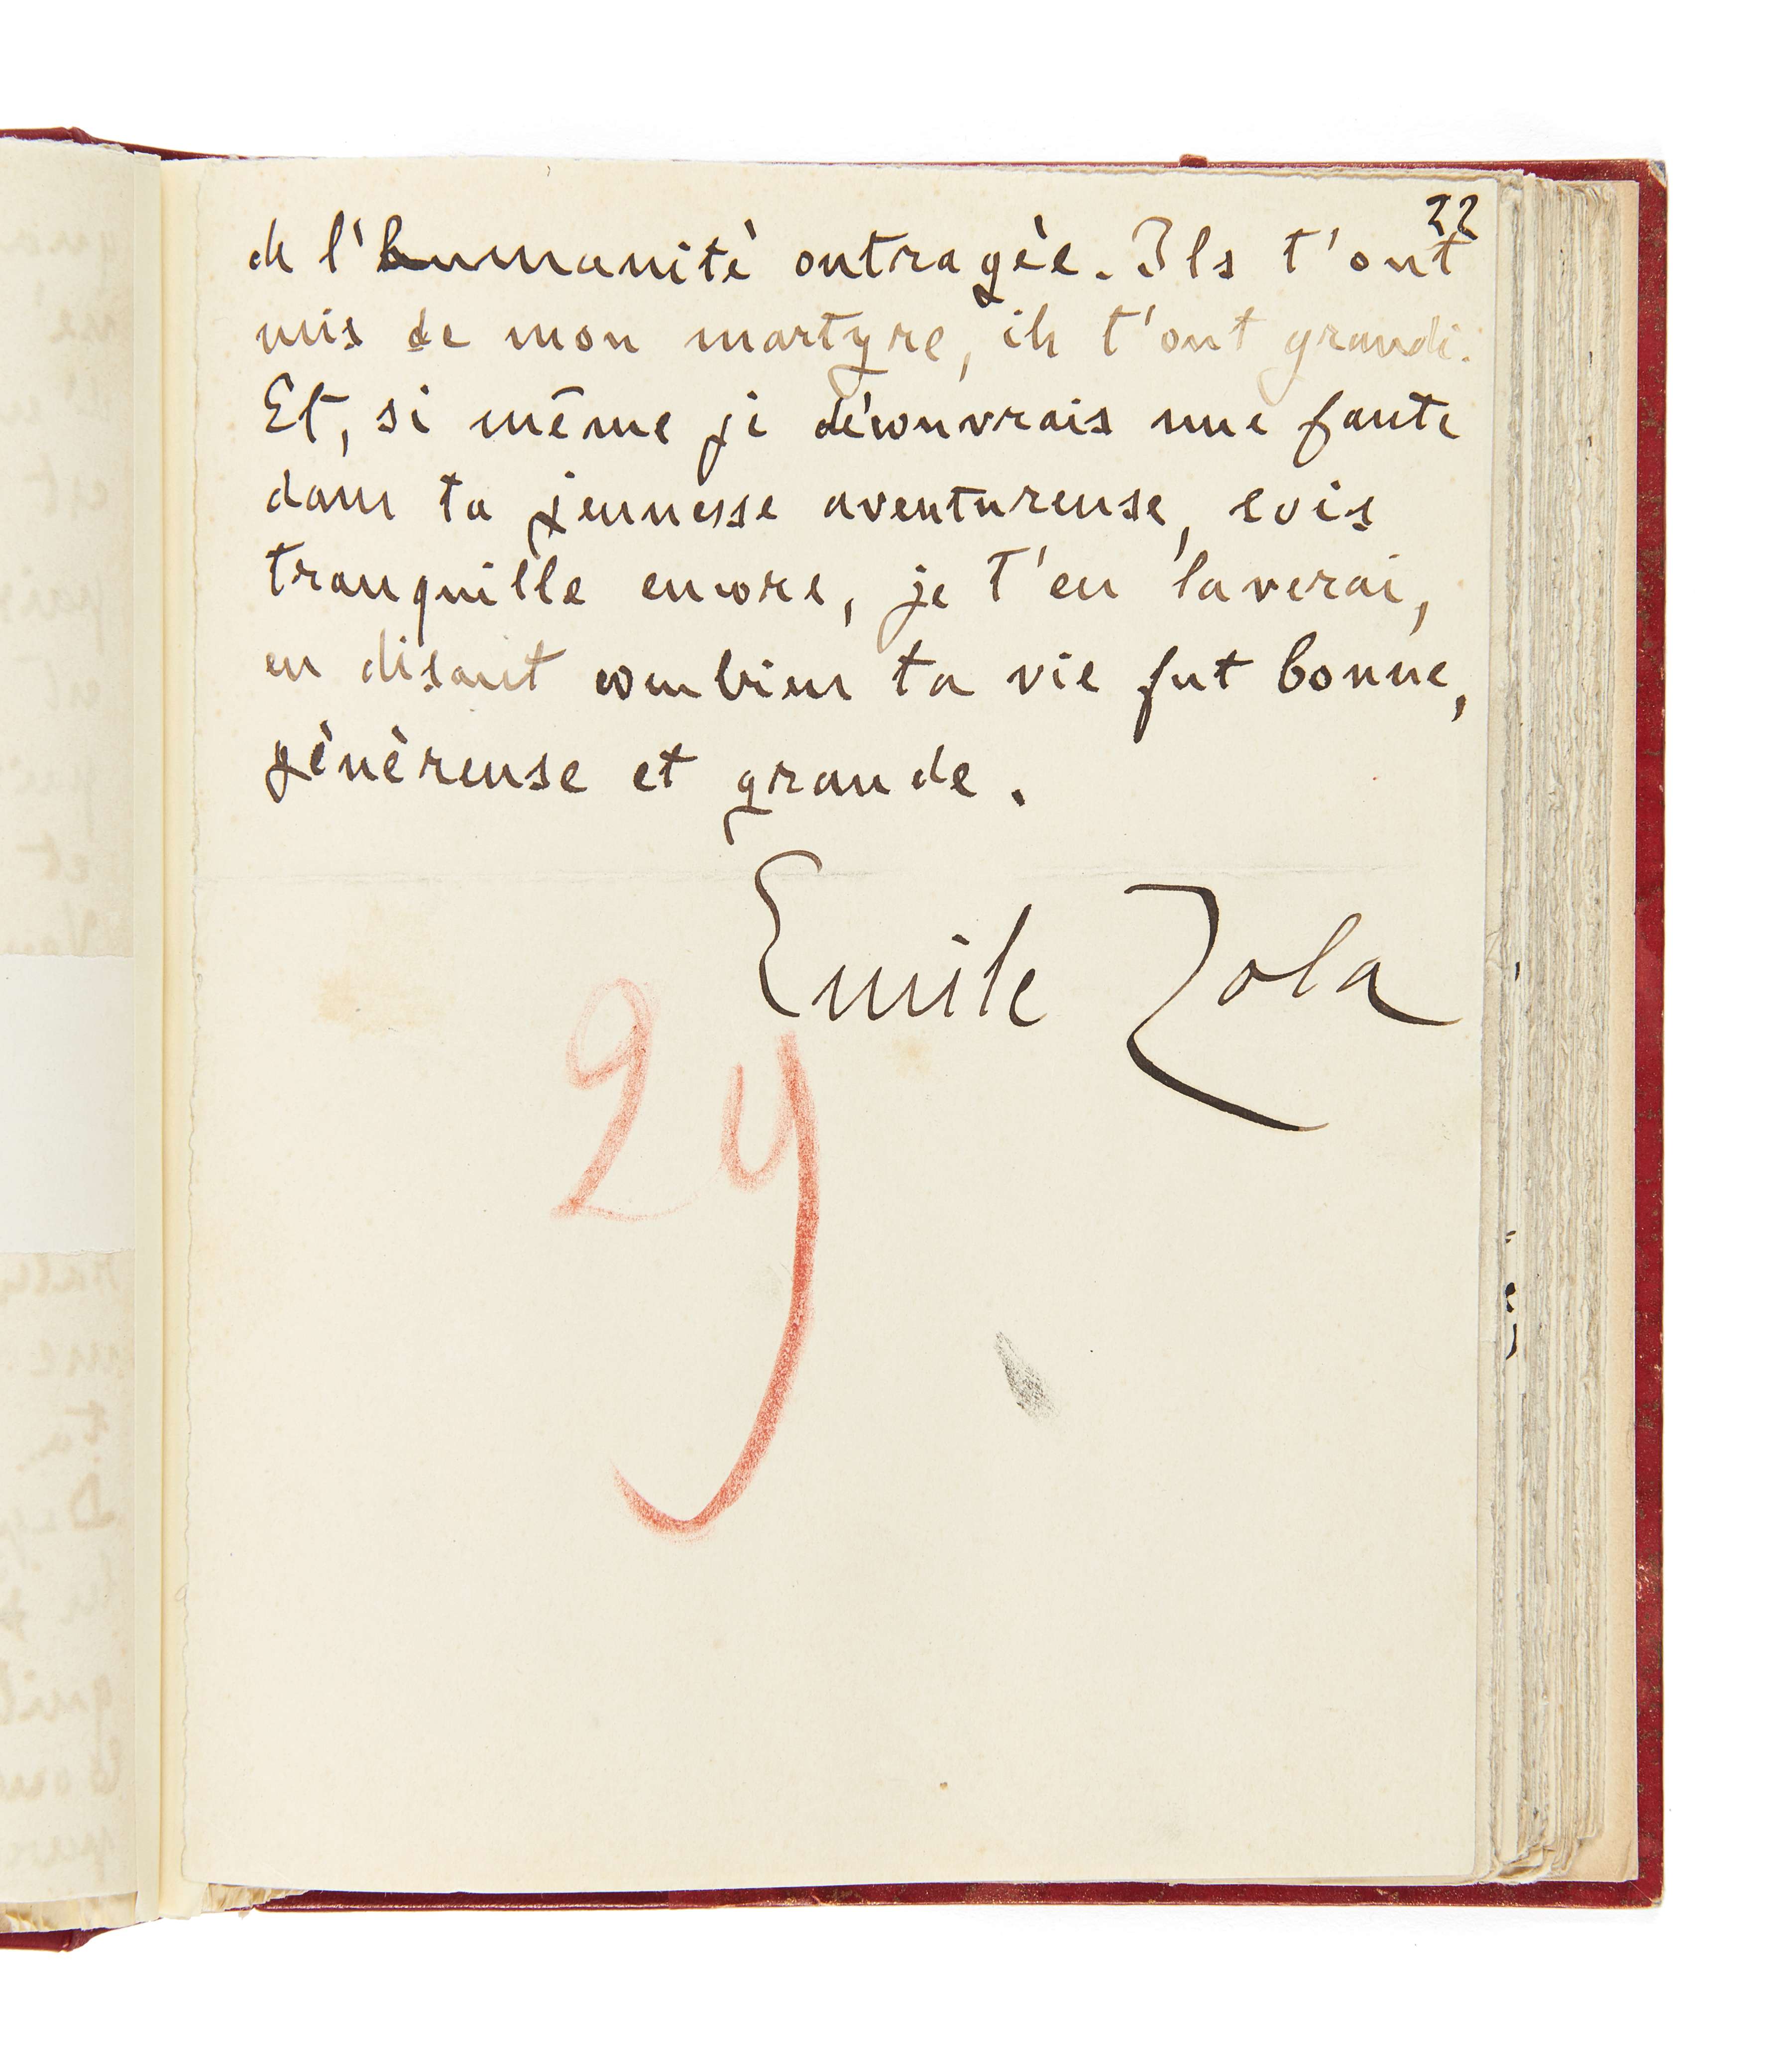 22
de l'humanité outragée. Ils t'ont
mis de mon martyre, ils t'ont grandi.
Et, si même je découvrais une faute
dans ta jeunesse aventureuse, sois
tranquille encore, je t'en laverai,
en disant combien ta vie fut bonne,
généreuse et grande.
Emile Zola
29